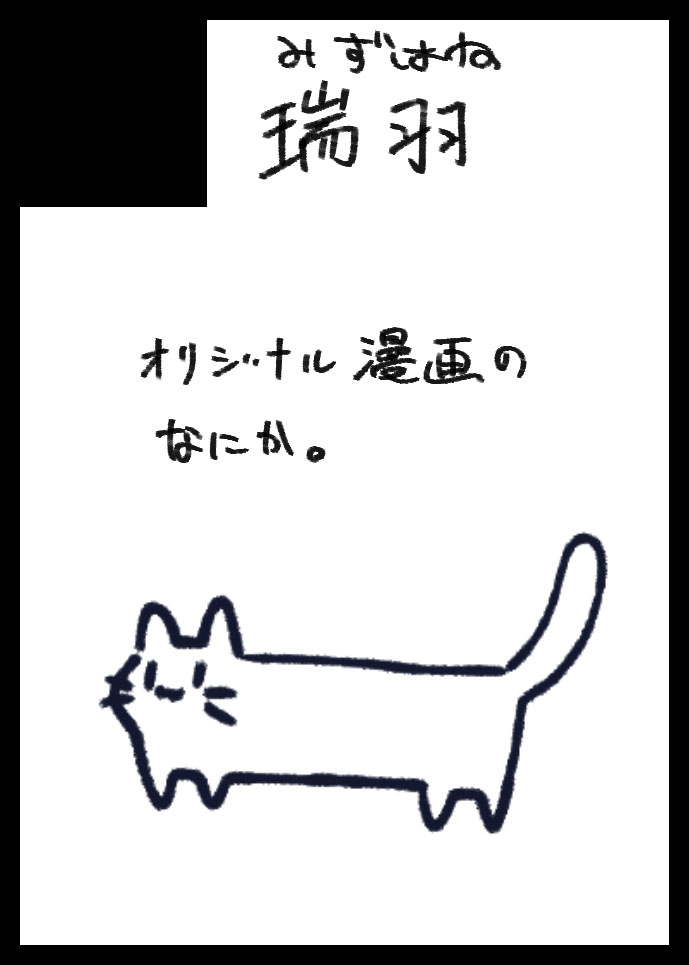 みずはね
瑞羽
オリジナル漫画の
なにか。